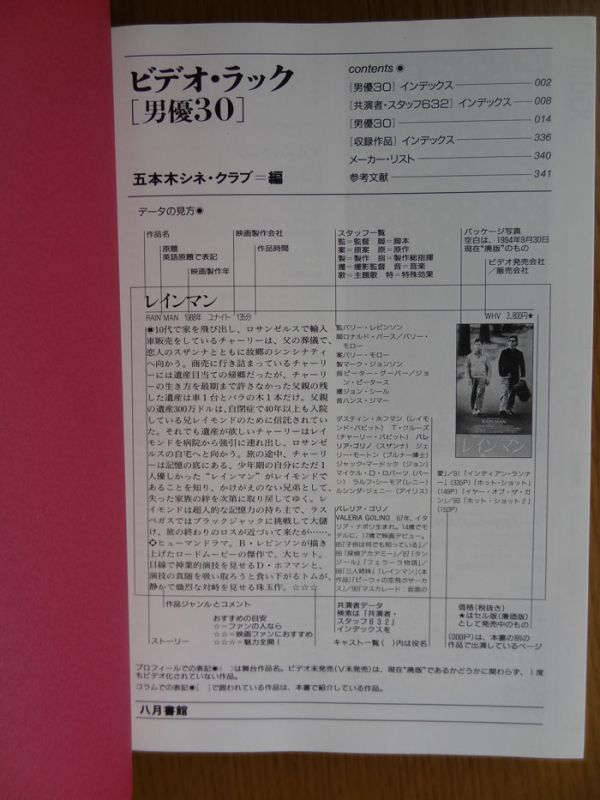 ビデオ・ラック
[男優30]
五本木シネ・クラブ=編
contents◉
[男優30] インデックス 002
[共演者・スタッフ632] インデックス 008
[男優30] 014
[収録作品] インデックス 336
メーカー・リスト 340
参考文献 341
データの見方◉
作品名
原題
英語原題で表記
映画製作年
映画製作会社
作品時間
スタッフ一覧
監=監督 脚=脚本
案=原案 原=原作
製=製作 指=製作総指揮
撮=撮影監督 音=音楽
歌=主題歌 特=特殊効果
パッケージ写真
空白は、1994年9月30日
現在"廃版"のもの
ビデオ発売会社
/販売会社
レインマン
RAIN MAN 1988年 ユナイト 135分
WHV 3,800円★
◉10代で家を飛び出し、ロサンゼルスで輸入
車販売をしているチャーリーは、父の葬儀で、
恋人のスザンナとともに故郷のシンシナティ
へ向かう。商売に行き詰まっているチャーリ
ーには遺産目当ての帰郷だったが、チャーリ
ーの生き方を最期まで許さなかった父親の残
した遺産は車1台とバラの木1本だけ。父親
の遺産300万ドルは、自閉症で40年以上も入院
している兄レイモンドのために信託されてい
た。それでも遺産が欲しいチャーリーはレイ
モンドを病院から強引に連れ出し、ロサンゼ
ルスの自宅へと向かう。旅の途中、チャーリ
ーは記憶の底にある、少年期の自分にただ1
人優しかった"レインマン"がレイモンドで
あることを知り、かけがえのない兄弟として、
失った家族の絆を次第に取り戻してゆく。レイ
モンドは超人的な記憶力の持ち主で、ラス
ベガスではブラックジャックに挑戦して大儲
け、旅の終わりのロスが近づいて来たが……。
◇ヒューマンドラマ。B・レビンソンが描き
上げたロードムービーの傑作で、大ヒット。
目線で神業的演技を見せるD・ホフマンと、
演技の真随を吸い取ろうと食い下がるトムが、
静かで熾烈な対峙を見せる珠玉作。☆☆☆
監バリー・レビンソン
脚ロナルド・バース/バリー・
モロー
案バリー・モロー
製マーク・ジョンソン
指ピーター・グーバー/ジョ
ン・ピータース
撮ジョン・シール
音ハンス・ジマー
ダスティン・ホフマン(レイモ
ンド・バビット) T・クルーズ
(チャーリー・バビット) バレ
リア・ゴリノ(スザンナ) ジェ
リー・モートン(ブルナー博士)
ジャック・マードック(ジョン)
マイケル・D・ロバーツ(バー
ン) ラルフ・シーモア(レニー)
ルシンダ・ジェニー(アイリス)
バレリア・ゴリノ
VALERIA GOLINO 67年、イタ
リア・ナポリ生まれ。14歳でモ
デルに、17歳で映画デビュー。
RAIN MAN
レインマン
愛」/'91「インディアン・ランナ
ー」(335P)「ホット・ショット」
(149P)「イヤー・オブ・ザ・ガ
ン」/'93「ホット・ショット2」
(150P)
作品ジャンルとコメント
おすすめの目安
☆=ファンの人なら
☆☆=映画ファンにおすすめ
☆☆☆=魅力全開!
ストーリー
共演者データ
検索は「共演者・
スタッフ632」
インデックスを
キャスト一覧( )内は役名
価格(税抜き)
★はセル版(廉価版)
として発売中のもの
(000P)は、本書の別の
作品で出演しているページ
プロフィールでの表記◉〈 〉は舞台作品。ビデオ未発売(V未発売)は、現在"廃版"であるかどうかに関わらず、1度
もビデオ化されていない作品。
コラムでの表記◉[ ]で囲われている作品は、本書で紹介している作品。
八月書館